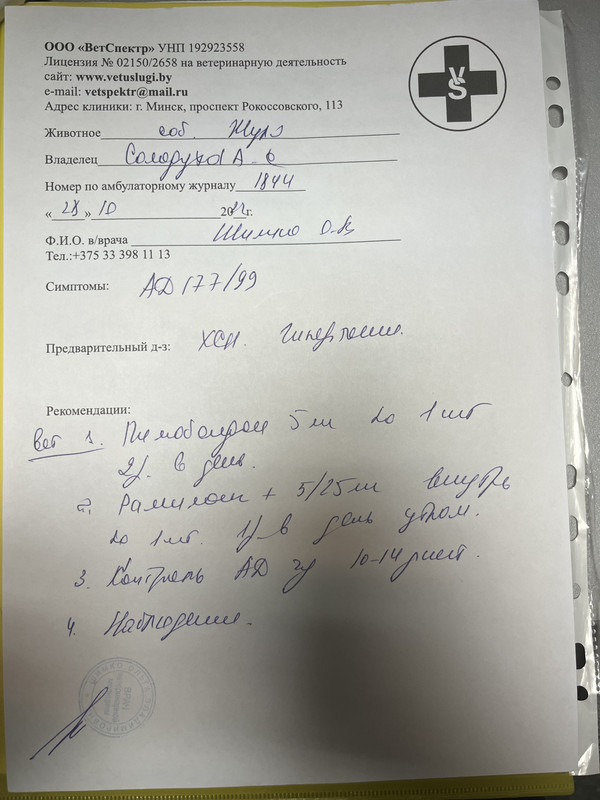 ООО «ВетСпектр» УНП 192923558
Лицензия № 02150/2658 на ветеринарную деятельность
сайт: www.vetuslugi.by
e-mail: vetspektr@mail.ru
Адрес клиники: г. Минск, проспект Рокоссовского, 113
VS
Животное соб.
Владелец А.
Номер по амбулаторному журналу 1844
«28» 10 20 г.
Ф.И.О. в/врача Шимко О.В
Тел.:+375 33 398 11 13
Симптомы: АД 177/99
Предварительный д-з: ХСН. Гипертензия.
Рекомендации:
Вет 1. Пимобендан 5 мг по 1 шт
2 р. в день.
2. Рамилонг + 5/25 мг внутрь
по 1 шт. 1 р в день утром.
3. Контроль АД чз 10-14 дней.
4. Наблюдение.